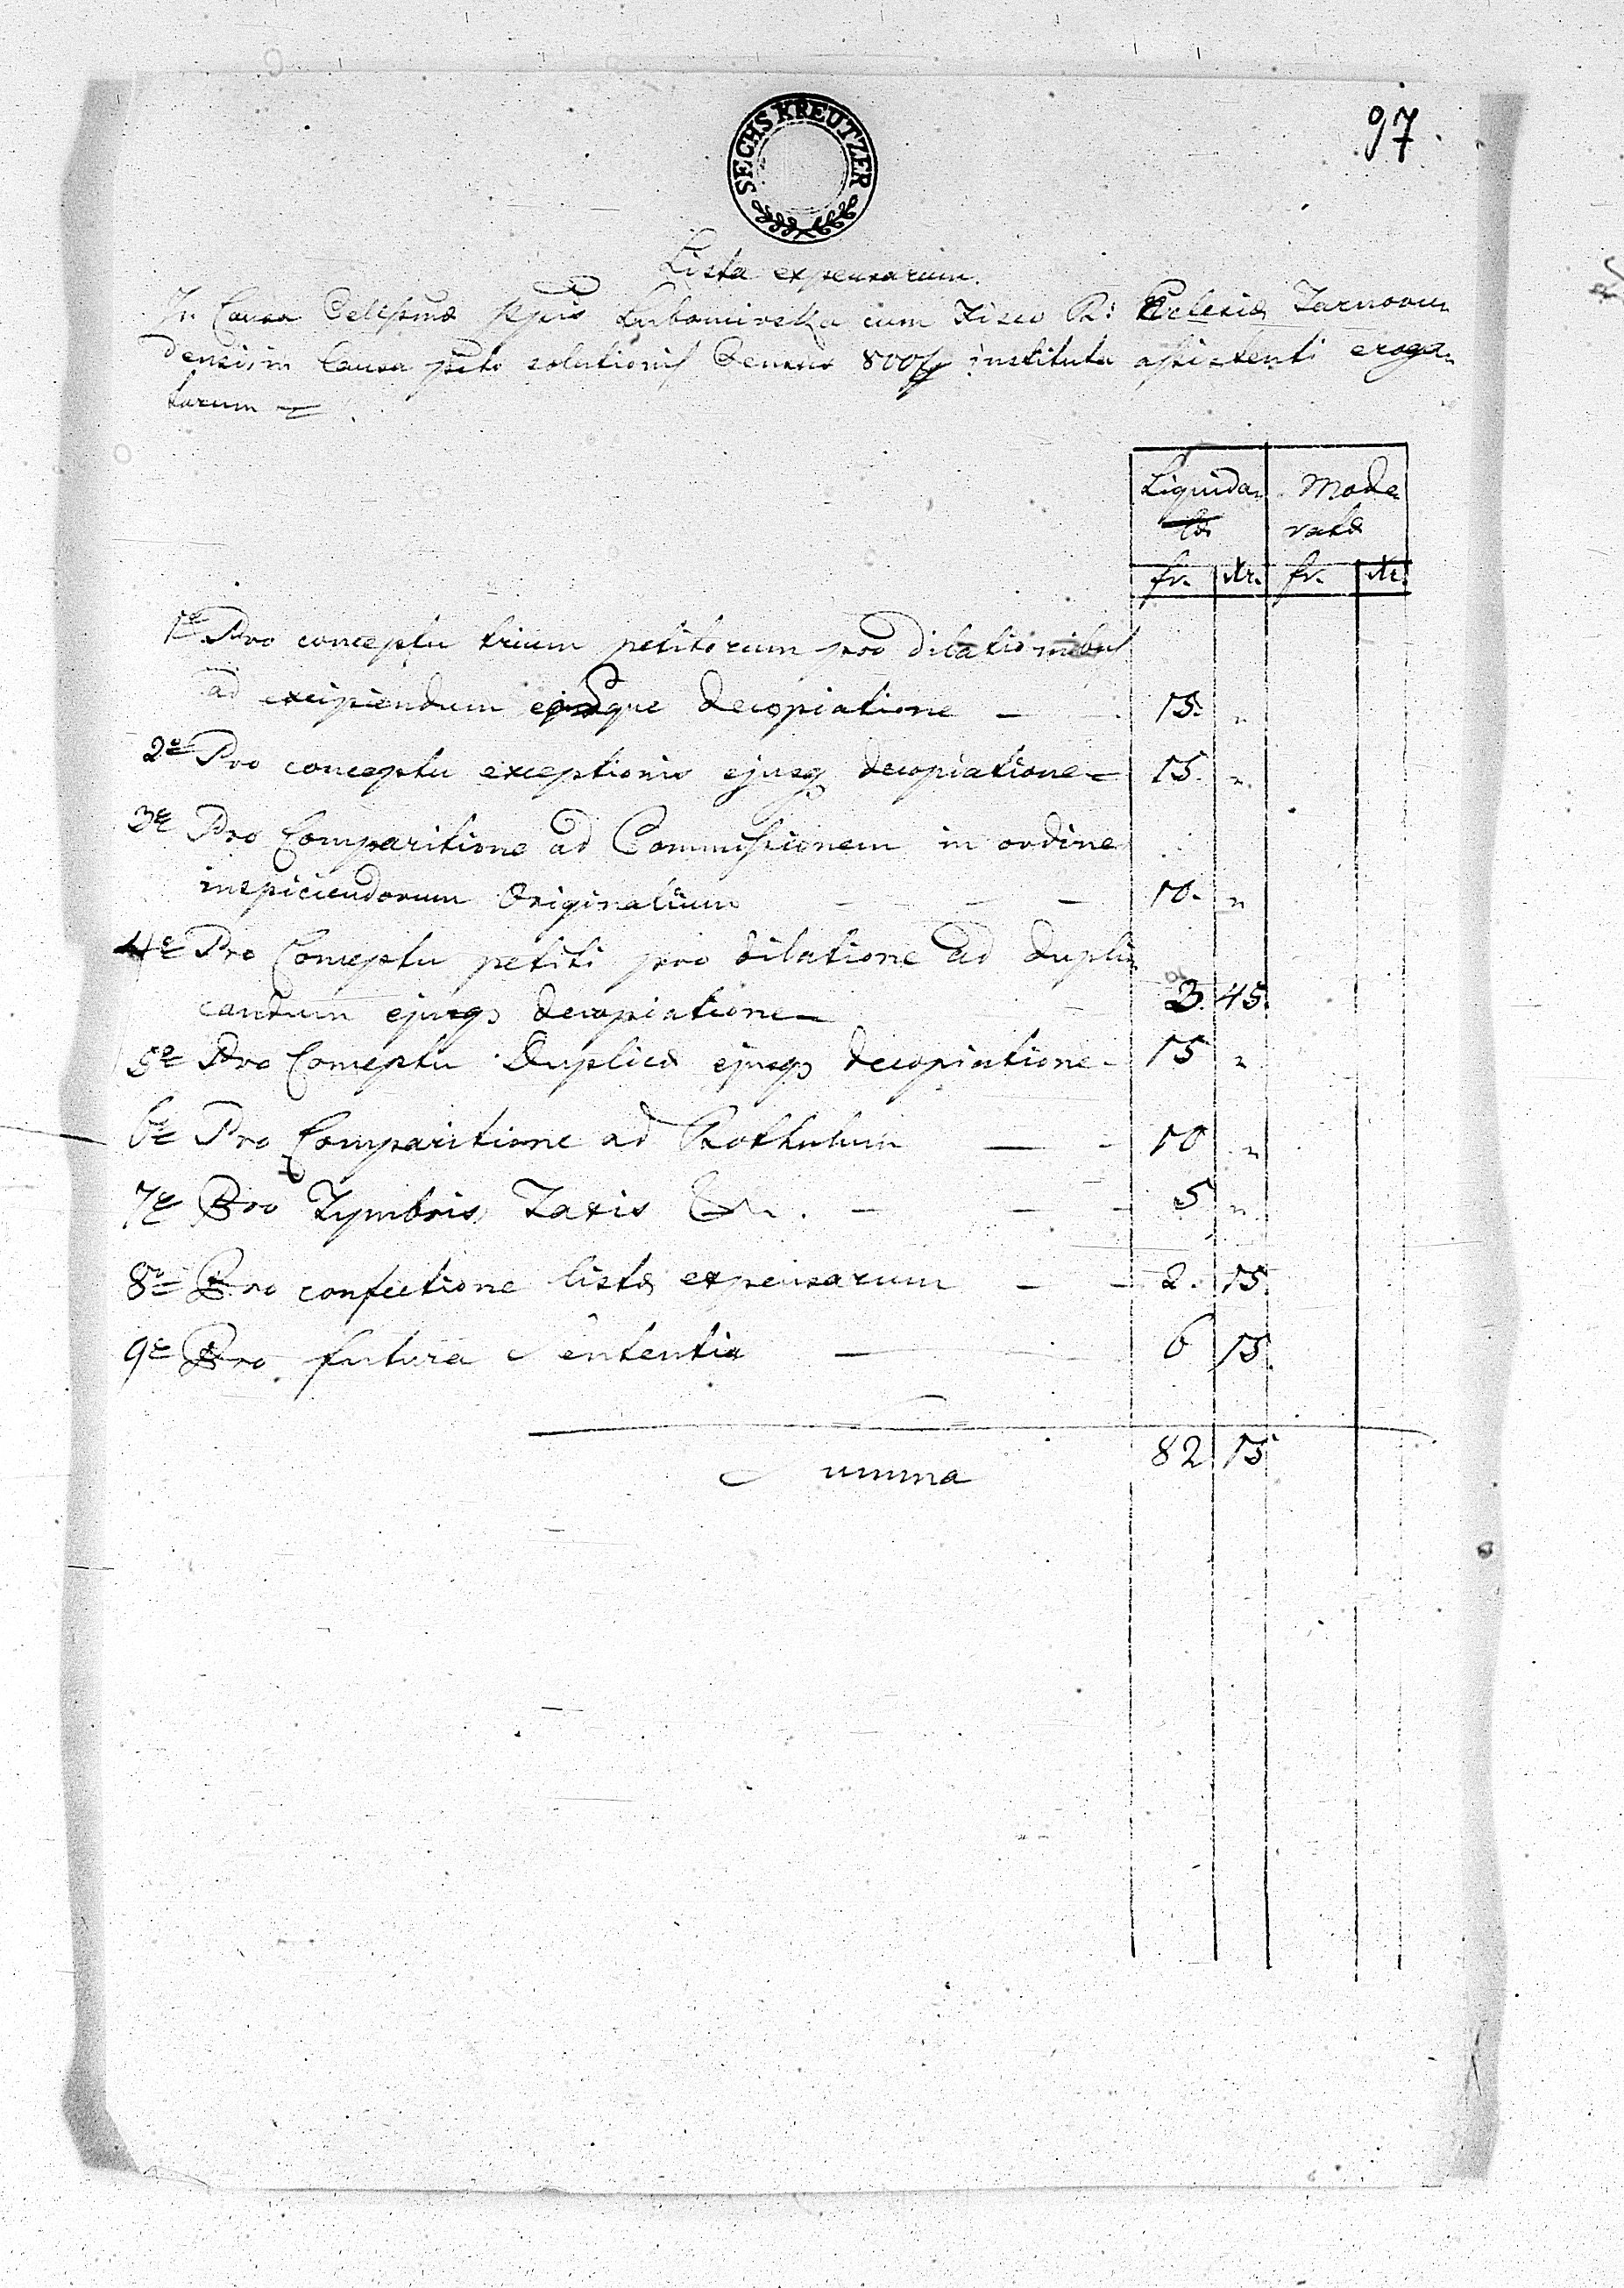 97
SECHS KREUTZER
Lista expensarum.
In Causa Celsissimæ Lubomirska cum Fisco R: Ecclesiæ Tarnovi„
densi, in Causa solutionis Census 800 fr instituta assistenti eroga„
tarum
Liquida„ Mode„
tæ ratæ
fr. Xr. fr. Xr.
1º Pro conceptu trium petitorum pro dilationibus
ad excipiendum ejusque decopiatione — 15. „
2º Pro conceptu exceptionis ejusq decopiatione 15. „
3º Pro Comparitione ad Commissionem in ordine
inspiciendorum Originalium — — — 10. „
4º Pro Conceptu petiti pro dilatione ad dupli„
candum ejusq decopiatione — 3. 45.
5º Pro Conceptu Duplicæ ejusq decopiatione 15 „
6º Pro Comparitione ad Rothulum — 10 „
7º Pro Tymbris Taxis — — 5 „
8º Pro confectione listæ expensarum — — 2. 15.
9º Pro futura Sententia — — 6 15.
Summa 82 15